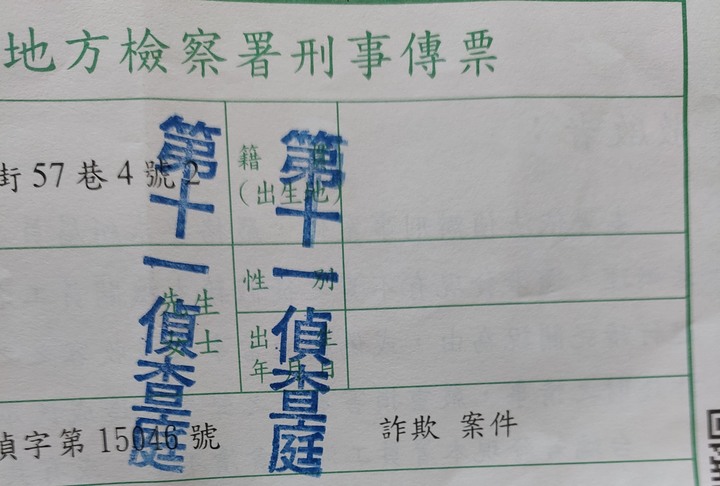 地方檢察署刑事傳票
街57巷4號2
籍
(出生地)
性別
先生
女士
出生
年月日
偵字第15046號
詐欺 案件
第十一偵查庭
第十一偵查庭